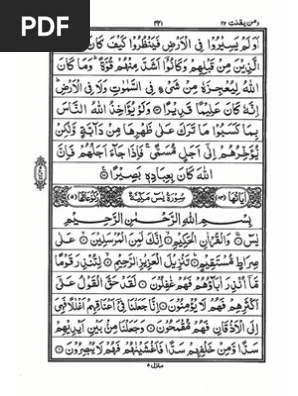 PDF
ومن يقنت ٢٢
٤٤١
اَوَلَمْ يَسِيْرُوْا فِي الْاَرْضِ فَيَنْظُرُوْا كَيْفَ كَانَ
الَّذِيْنَ مِنْ قَبْلِهِمْ وَكَانُوْٓا اَشَدَّ مِنْهُمْ قُوَّةً ؕ وَمَا كَانَ
اللّٰهُ لِيُعْجِزَهٗ مِنْ شَيْءٍ فِي السَّمٰوٰتِ وَلَا فِي الْاَرْضِ ؕ
اِنَّهٗ كَانَ عَلِيْمًا قَدِيْرًا ۝ وَلَوْ يُؤَاخِذُ اللّٰهُ النَّاسَ
بِمَا كَسَبُوْا مَا تَرَكَ عَلٰى ظَهْرِهَا مِنْ دَآبَّةٍ وَّلٰكِنْ
يُّؤَخِّرُهُمْ اِلٰٓى اَجَلٍ مُّسَمًّى ۚ فَاِذَا جَآءَ اَجَلُهُمْ فَاِنَّ
اللّٰهَ كَانَ بِعِبَادِهٖ بَصِيْرًا ۝
اٰيَاتُهَا ٨٣ سُوْرَةُ يٰسٓ مَكِّيَّةٌ رُكُوْعَاتُهَا ٥
بِسْمِ اللّٰهِ الرَّحْمٰنِ الرَّحِيْمِ
يٰسٓ ۝ وَالْقُرْاٰنِ الْحَكِيْمِ ۝ اِنَّكَ لَمِنَ الْمُرْسَلِيْنَ ۝ عَلٰى
صِرَاطٍ مُّسْتَقِيْمٍ ۝ تَنْزِيْلَ الْعَزِيْزِ الرَّحِيْمِ ۝ لِتُنْذِرَ قَوْمًا
مَّآ اُنْذِرَ اٰبَآؤُهُمْ فَهُمْ غٰفِلُوْنَ ۝ لَقَدْ حَقَّ الْقَوْلُ عَلٰٓى
اَكْثَرِهِمْ فَهُمْ لَا يُؤْمِنُوْنَ ۝ اِنَّا جَعَلْنَا فِيْٓ اَعْنَاقِهِمْ اَغْلٰلًا فَهِيَ
اِلَى الْاَذْقَانِ فَهُمْ مُّقْمَحُوْنَ ۝ وَجَعَلْنَا مِنْۢ بَيْنِ اَيْدِيْهِمْ
سَدًّا وَّمِنْ خَلْفِهِمْ سَدًّا فَاَغْشَيْنٰهُمْ فَهُمْ لَا يُبْصِرُوْنَ ۝
منزل ٥